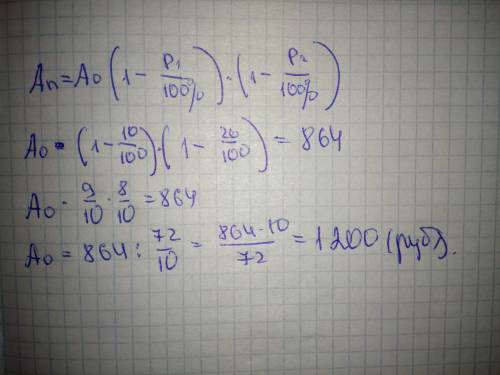 An = A0 (1 - P1/100%) · (1 - P2/100%)
A0 · (1 - 10/100) · (1 - 20/100) = 864
A0 · 9/10 · 8/10 = 864
A0 = 864 : 72/10 = 864·10/72 = 1200 (руб).